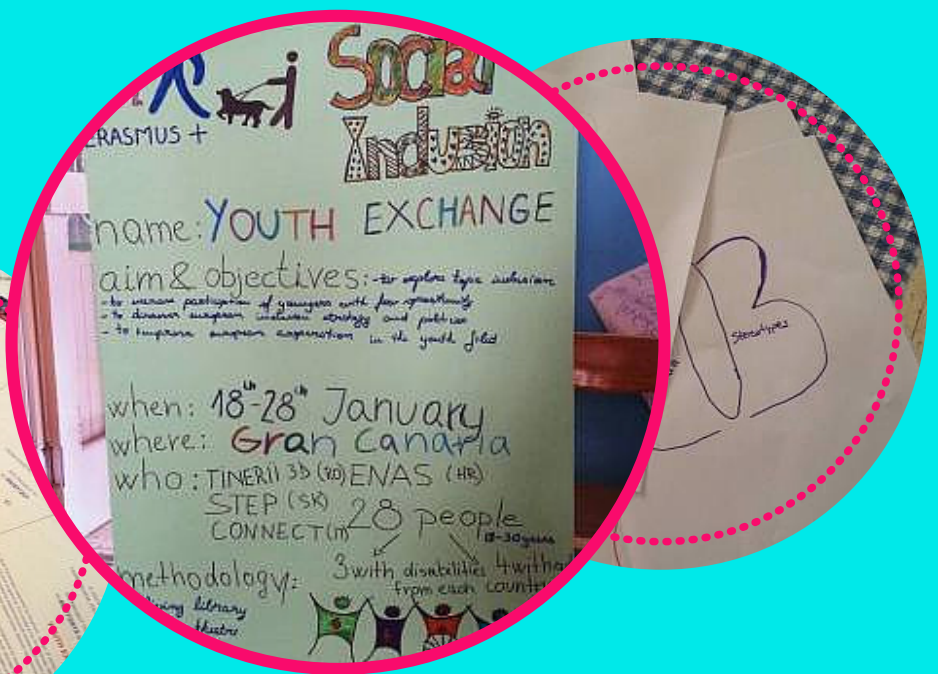 ERASMUS +
Social
Inclusion
name: YOUTH EXCHANGE
aim & objectives: - to explore topic inclusion
- to increase participation of youngers with few opportunity
- to discover european inclusion strategy and politics
- to improve european cooperation in the youth filed
when: 18th-28th January
where: Gran Canaria
who: TINERII 3D (RO) ENAS (HR)
STEP (SK)
CONNECT (IT) 28 people
18-30 years
3 with disabilities 4 witho
from each count
methodology:
living library
theatre
Stereotypes